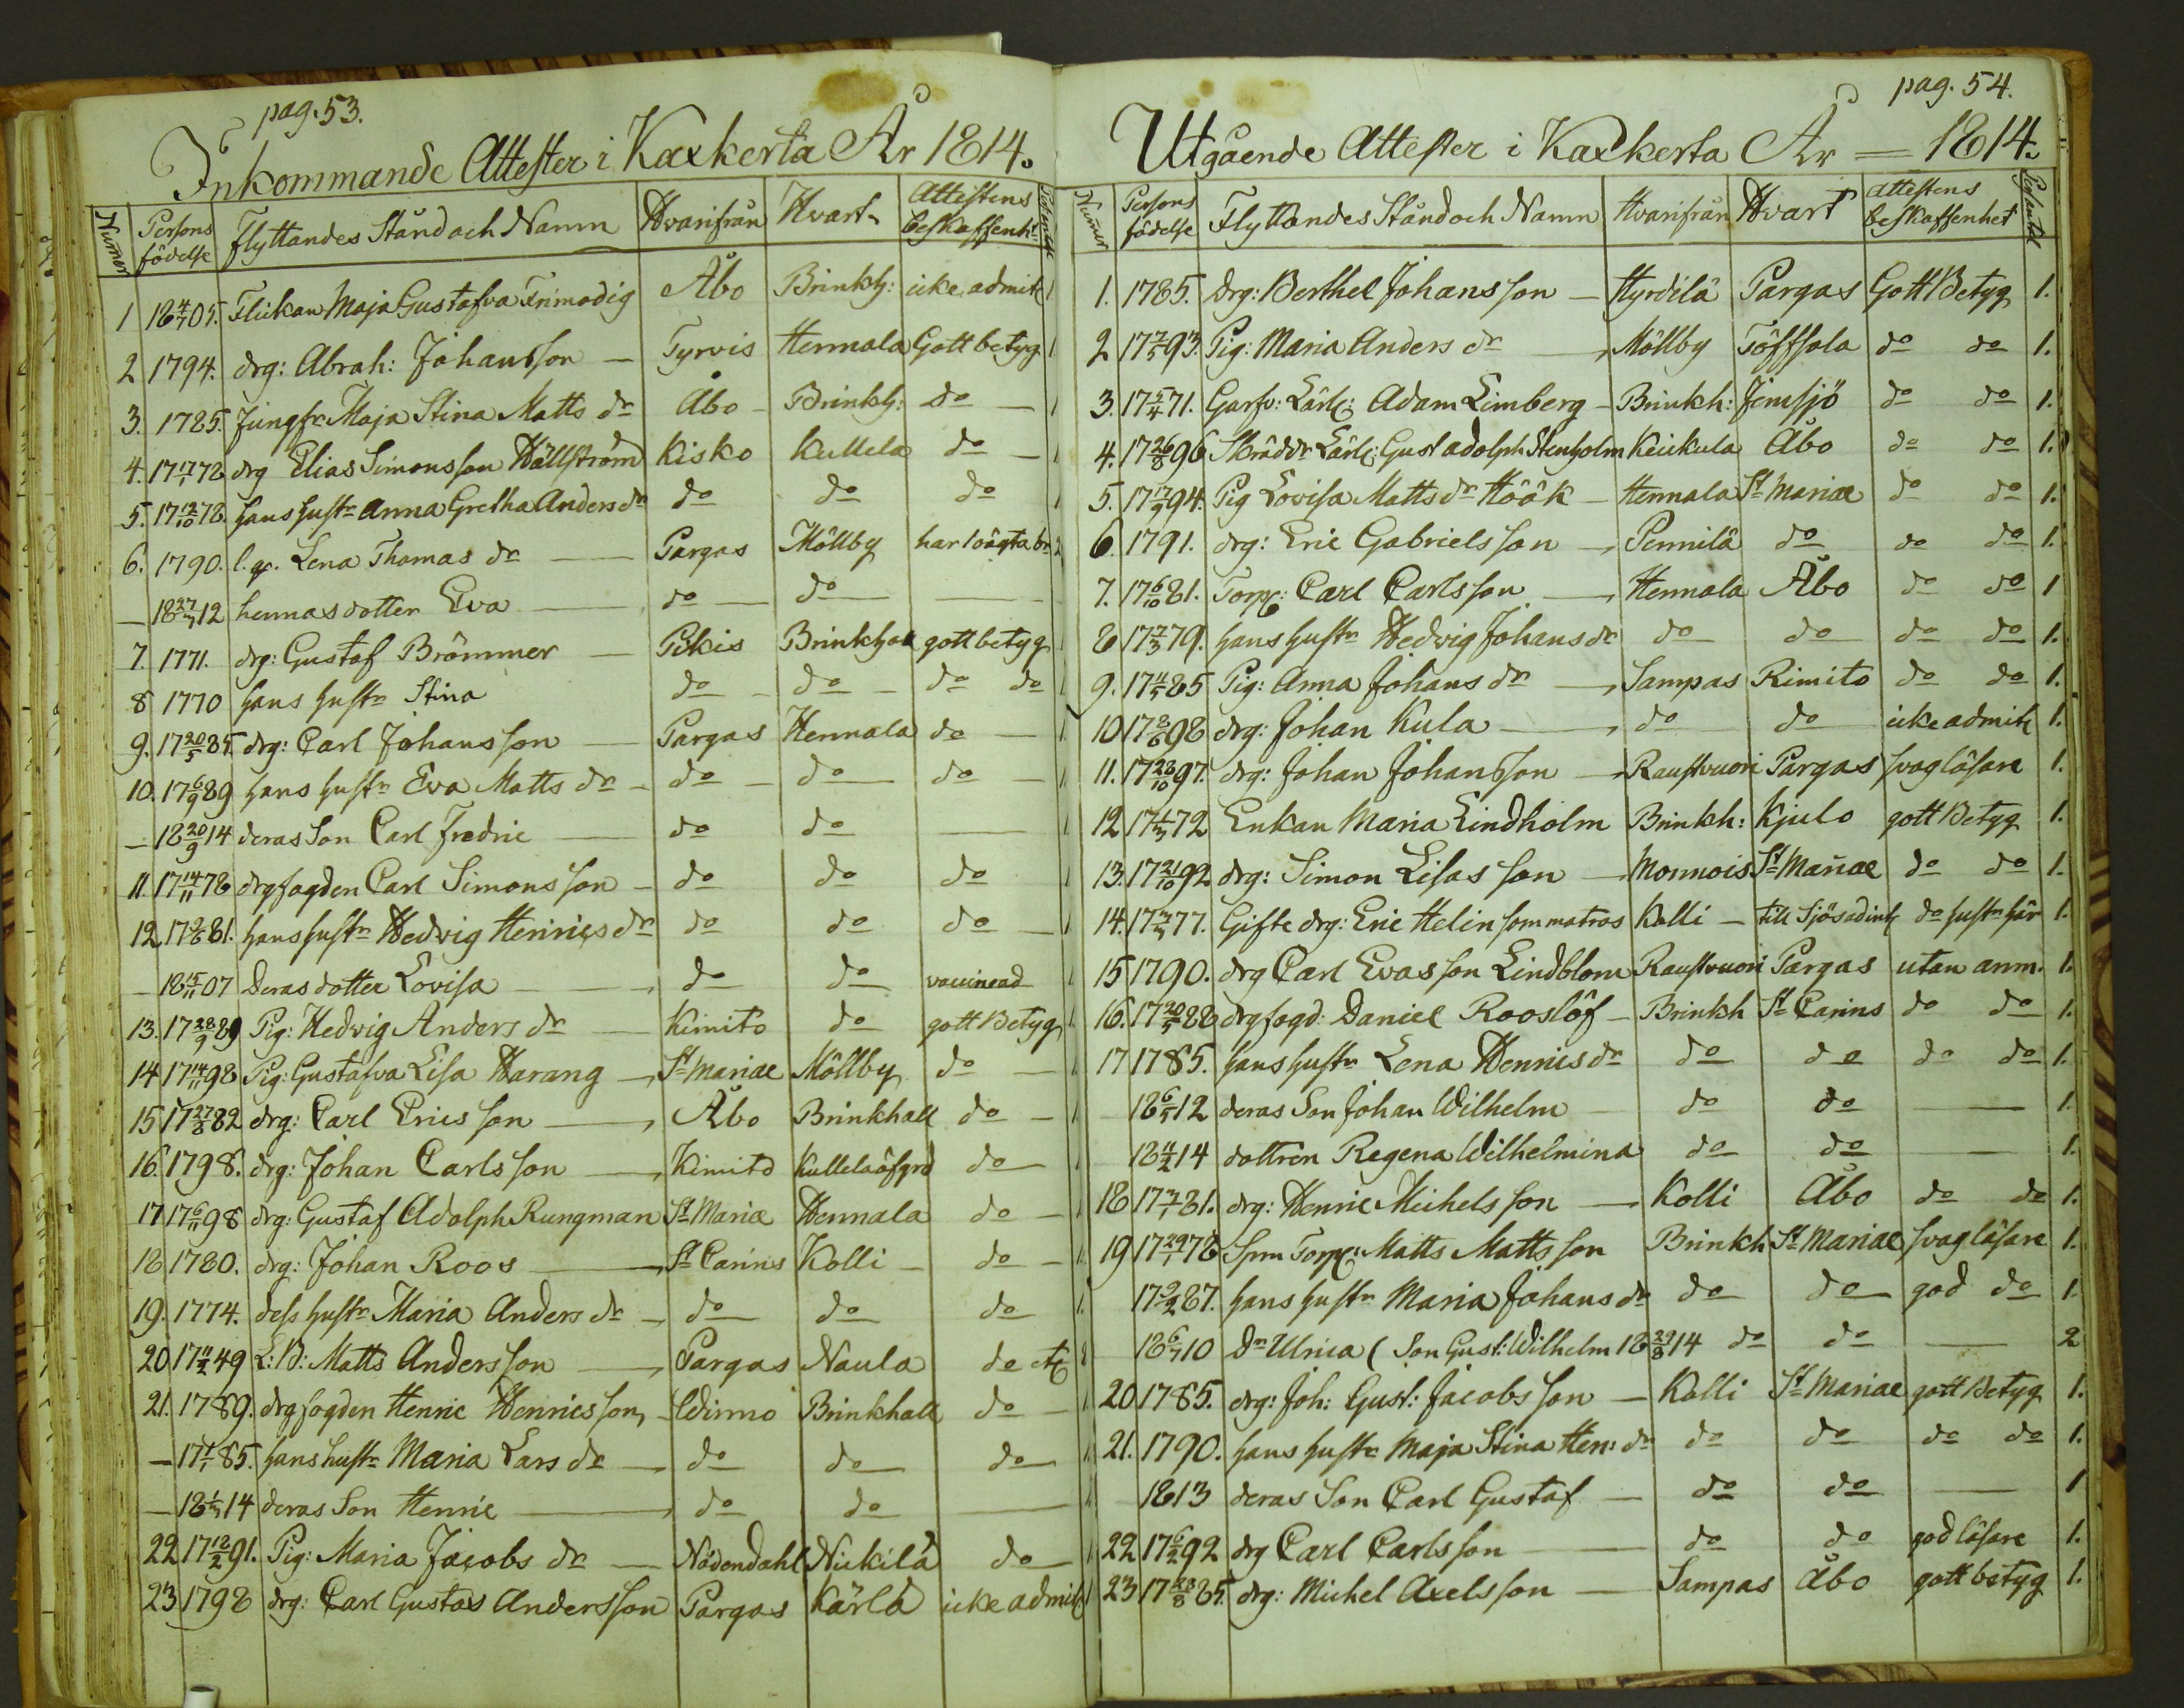 pag. 53.
Inkommande Attester i Kaxkerta År 1814.
Numer Persons födelse Flyttandes Stånd och Namn Hvarifrån Hvart Attestens beskaffenht:
1 18 4/7 05. Flickan Maja Gustafva Frimodig Åbo Brinkh: icke admitt 1
2 1794. drg: Abrah: Johansson — Tyrvis Hennala Gott betyg 1
3. 1785. Jungfr Maja Stina Matts dr Åbo — Brinkh: do — 1
4. 17 17/1 72 drg Elias Simonsson Hällström Kisko Kullela do — 1
5. 17 12/10 78. hans hustr Anna Gretha Anders dr do do do 1
6. 1790. l. qv. Lena Thomas dr — Pargas Möllby har 1 oägta br 2
— 18 27/7 12 hennas dotter Eva — do — do —
7. 1771. drg: Gustaf Brömmer — Pikis Brinkhall gott betyg 1
8 1770 hans hustr Stina do — do — do do 1
9. 17 20/5 85. drg: Carl Johansson — Pargas Hennala do — 1
10. 17 6/9 89 hans hustr Eva Matts dr — do — do do — 1
— 18 20/9 14 deras Son Carl Fredric — do do — 1
11. 17 14/11 78 drgfogden Carl Simonsson — do do do 1
12. 17 3/8 81. hans hustr Hedvig Henrics dr do do do — 1
— 18 15/11 07 Deras dotter Lovisa — do do vaccinead 1
13. 17 28/9 89 Pig: Hedvig Anders dr — Kimito do gott Betyg 1
14 17 14/11 98 Pig: Gustafva Lisa Harang — St Mariae Möllby do — 1
15 17 27/8 82 drg: Carl Ericsson — Åbo Brinkhall do — 1
16. 1798. drg: Johan Carlsson — Kimito Kullela öfgrd do 1
17 17 6/11 98 drg: Gustaf Adolph Rungman St Maria Hennala do — 1
18 1780. drg: Johan Roos — St Carins Kolli — do — 1.
19. 1774. dess hustr Maria Anders dr — do do do 1.
20 17 11/2 49 L: B: Matts Andersson — Pargas Naula do etc 1
21. 1789. drgfogden Henric Henricsson, — Virmo Brinkhall do — 1
— 17 1/1 85. hans hustr Maria Lars dr — do do do 1
— 18 1/7 14 deras Son Henric — do do — 1
22 17 12/2 91. Pig: Maria Jacobs dr — Nådendahl Nickilä do 1
23 1798 drg: Carl Gustas Andersson Pargas Kärlä icke admitt 1
pag. 54.
Utgående Attester i Kaxkerta År — 1814.
Numer Persons födelse Flyttandes Stånd och Namn Hvarifrån Hvart attestens beskaffenhet
1. 1785. Drg: Berthel Johansson — Hyrdilä Pargas Gott Betyg 1.
2 17 7/5 93. Pig: Maria Anders dr — Möllby Töffsala do do 1.
3. 17 5/4 71. Garfv: Lärl: Adam Limberg — Brinkh: Jemsjö do do 1.
4. 17 26/8 96 Skräddr Lärl: Gust adolph Stenholm Keickula Åbo do do 1.
5. 17 17/9 94. Pig Lovisa Matts dr Höök — Hennala St Mariae do do 1.
6. 1791. drg: Eric Gabrielsson — Pennilä do do do 1.
7. 17 6/10 81. Torp: Carl Carlsson — Hennala Åbo do do 1
8 17 7/3 79. hans hustr Hedvig Johans dr do do do do 1.
9. 17 4/5 85 Pig: Anna Johans dr — Sampas Rimito do do 1.
10 17 8/6 98 drg: Johan Kula — do do icke admitt 1.
11. 17 28/10 97. drg: Johan Johansson — Raustvuori Pargas svag läsare 1.
12 17 4/3 72 Enkan Maria Lindholm Brinkh: Kjulo gott Betyg 1.
13. 17 21/10 92 drg: Simon Lisasson — Monnois St Mariae do do 1.
14. 17 3/3 77. Gifte drg: Eric Helin som matros Kolli — till do hustr här 1.
15 1790. drg Carl Evasson Lindblom Raustvuori Pargas utan anm. 1.
16. 17 20/5 88 drgfogd: Daniel Rooslöf — Brinkh St Carins do do 1.
17 1785. hans hustr Lena Henrics dr do do do do 1.
18 6/5 12 deras Son Johan Wilhelm do do — 1.
18 4/2 14 dottren Regena Wilhelmina do do — 1.
18 17 3/1 81. drg: Henric Michelsson — Kolli Åbo do do 1.
19 17 29/1 78 Torp: Matts Mattsson Brinkh St Mariae svag läsare 1.
17 3/2 87. hans hustr Maria Johans dr do do god do 1.
18 6/7 10 Dr Ulrica ( Son Gust: Wilhelm 18 29/8 14 do do — 2
20 1785. drg: Joh: Gust: Jacobsson — Kolli St Mariae gott Betyg 1.
21. 1790. hans hustr Maja Stina Hen: dr do do do do 1.
1813 deras Son Carl Gustaf — do do — 1
22 17 6/2 92 drg Carl Carlsson — do do god läsare 1.
23 17 28/8 85. drg: Michel Axelsson — Sampas Åbo gott betyg 1.